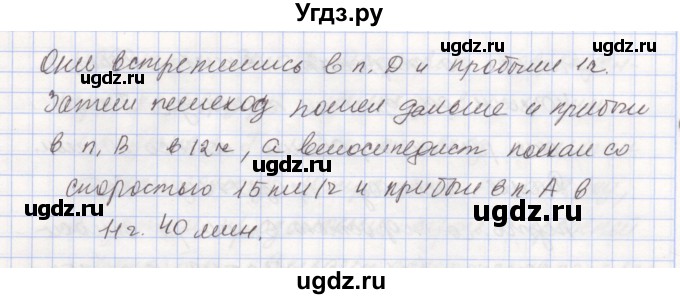 Угдз.ру
Они встретились в п. D и пробыли 1ч.
Затем пешеход пошел дальше и прибыл
в п. B в 12ч, а велосипедист поехал со
скоростью 15 км/ч и прибыл в п. A в
11ч. 40 мин.
ugdz.ru
ugdz.ru
ugdz.ru
ugdz.ru
ugdz.ru
ugdz.ru
ugdz.ru
ugdz.ru
ugdz.ru